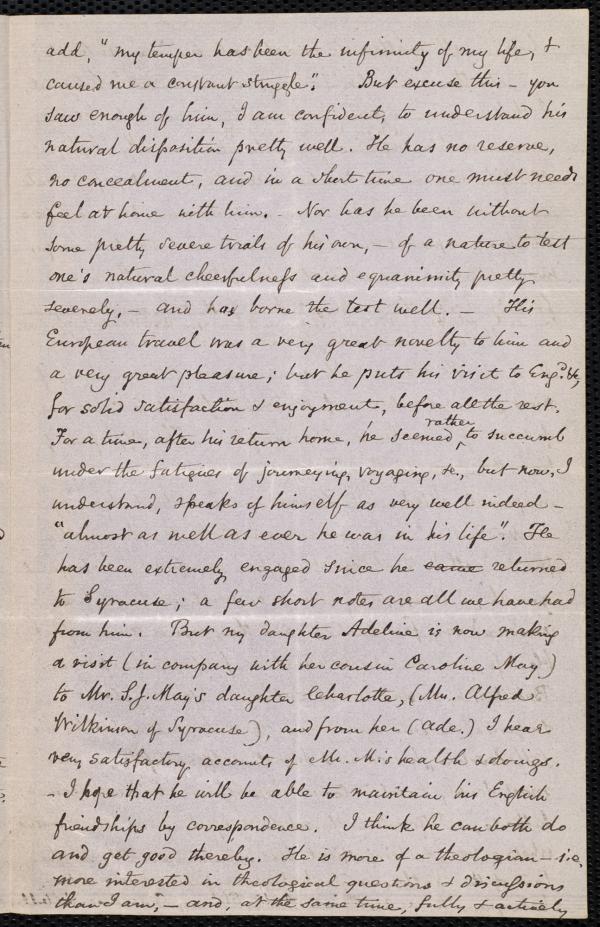 add, "my temper has been the infirmity of my life, &
caused me a constant struggle". But excuse this – you
saw enough of him, I am confident, to understand his
natural disposition pretty well. He has no reserve,
no concealment, and in a short time one must needs
feel at home with him. – Nor has he been without
some pretty severe trials of his own, – of a nature to test
one's natural cheerfulness and equanimity pretty
severely, – and has borne the test well. – His
European travel was a very great novelty to him and
a very great pleasure; but he puts his visit to Eng.d &c,
for solid satisfaction & enjoyment, before all the rest.
rather
For a time, after his return home, he seemed ^ to succumb
under the fatigues of journeying, voyaging, &c., but now, I
understand, speaks of himself as very well indeed –
"almost as well as ever he was in his life". He
has been extremely engaged since he came returned
to Syracuse; a few short notes are all we have had
from him. But my daughter Adeline is now making
a visit (in company with her cousin Caroline May)
to Mr. S. J. May's daughter Charlotte, (Mrs. Alfred
Wilkinson of Syracuse), and from her (Ade.) I hear
very satisfactory accounts of Mr. M.'s health & doings.
– I hope that he will be able to maintain his English
friendships by correspondence. I think he can both do
and get good thereby. He is more of a theologian – i.e.
more interested in theological questions & discussions
than I am, – and, at the same time, fully & actively